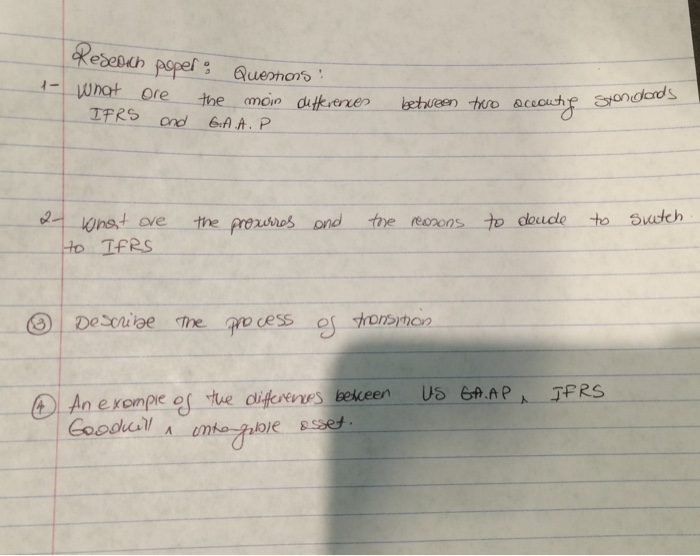 Research paper: Questions:
1- What are the main differences between two accounting standards
IFRS and G.A.A.P
2- What are the pressures and the reasons to decide to switch
to IFRS
3 Describe the process of transition
4 An example of the differences between US GA.AP, IFRS
Goodwill, intangible asset.